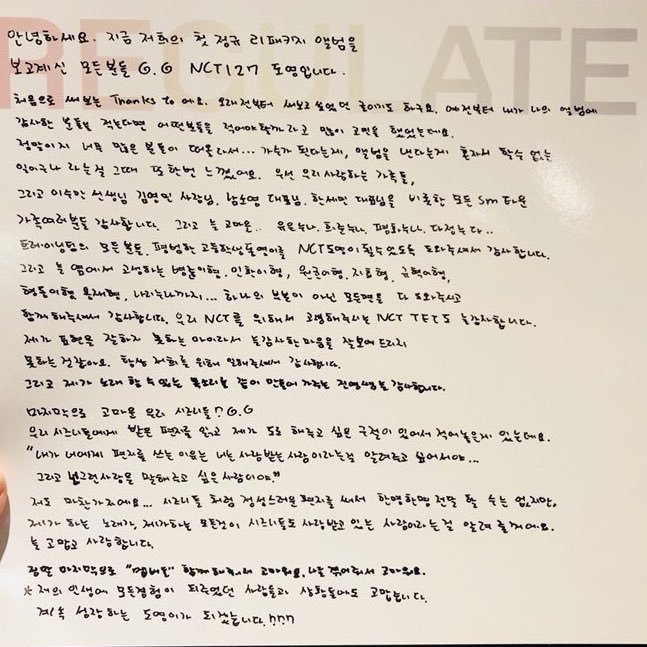 REGULATE
안녕하세요. 지금 저희의 첫 정규 리패키지 앨범을
보고계신 모든분들 G.G NCT127 도영입니다.
처음으로 써보는 Thanks to 에요. 오래전부터 써보고 싶었던 글이기도 하구요. 예전부터 내가 나의 앨범에
감사한 분들을 적는다면 어떤분들을 적어야할까라고 많이 고민을 했었는데요.
정말이지 너무 많은 분들이 떠올라서... 가수가 된다는게, 앨범을 낸다는게 혼자서 할수 없는
일이구나 라는걸 그때 또한번 느꼈어요. 우선 우리사랑하는 가족들,
그리고 이수만 선생님 김영민 사장님, 남소영 대표님, 한세민 대표님을 비롯한 모든 SM 타운
가족여러분들 감사합니다. 그리고 늘 고마운..
트레이닝팀의 모든분들. 평범한 고등학생동영이를 NCT도영이 될수있도록 도와주셔서 감사합니다.
그리고 늘 옆에서 고생하는 병준이형, 인학이형,
나리누나까지... 하나의 부분이 아닌 모든면을 다 도와주시고
함께해주셔서 감사합니다. 우리 NCT를 위해서 고생해주시는 NCT 늘감사합니다.
제가 표현을 잘하지 못하는 아이라서 늘감사한마음을 잘보여드리지
못하는것같아요. 항상 저희를 위해 일해주셔서 감사합니다.
그리고 제가 노래 할 수 있는 목소리를 같이 만들어 가주는 선생님들 감사합니다.
마지막으로 고마운 우리 시즈니들? G.G
우리시즈니들에게 받은 편지를 읽고 제가 도로 해주고 싶은 구절이 있어서 적어놓은게 있는데요.
"내가 너에게 편지를 쓰는 이유는 너는 사랑받는 사람이라는걸 알려주고 싶어서야...
그리고 넌그런사람을 말해주고 싶은사람이야."
저도 마찬가지에요... 시즈니들 처럼 정성스러운편지를 써서 한명한명 전달 할 수는 없지만,
제가 하는 노래가, 제가하는 모든것이 시즈니들도 사랑받고 있는 사람이라는걸 알려 줄꺼에요.
늘 고맙고 사랑합니다.
정말 마지막으로 "멤버들" 함께해줘서 고마워요. 고마워요.
* 저의 인생에 모든경험이 되주었던 사람들과 상황들에도 고맙습니다.
계속 성장하는 도영이가 되겠습니다.???